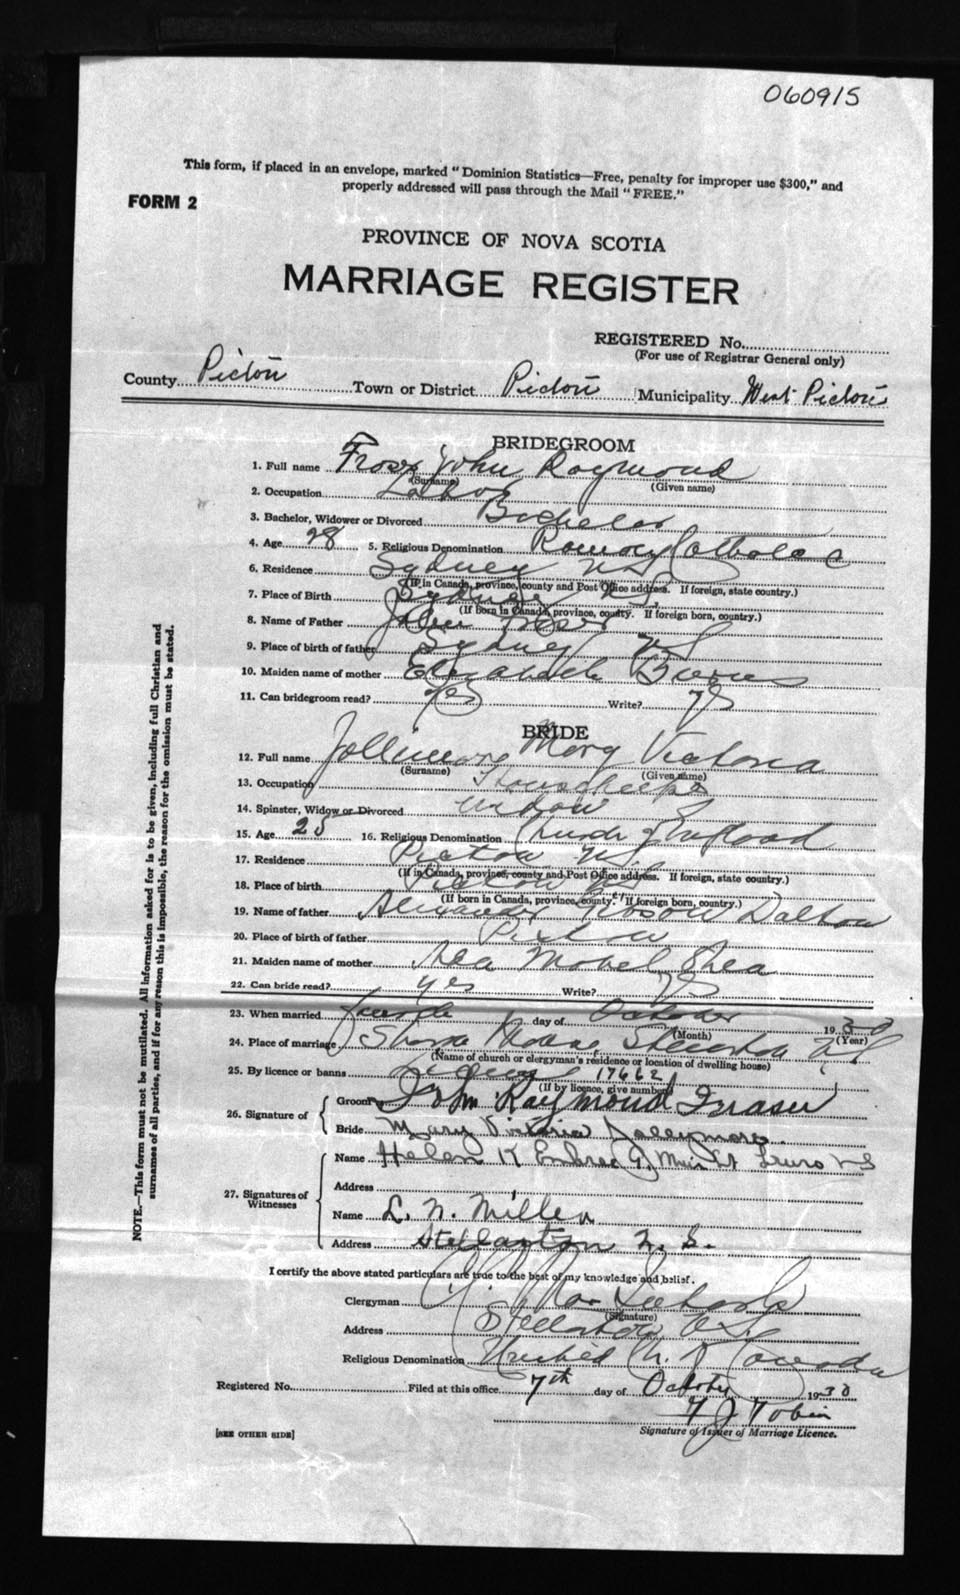 060915
This form, if placed in an envelope, marked "Dominion Statistics—Free, penalty for improper use $300," and
properly addressed will pass through the Mail "FREE."
FORM 2
PROVINCE OF NOVA SCOTIA
MARRIAGE REGISTER
REGISTERED No.
(For use of Registrar General only)
County Pictou Town or District Pictou Municipality West Pictou
BRIDEGROOM
1. Full name John Raymond
(Surname) (Given name)
2. Occupation Labor
3. Bachelor, Widower or Divorced Bachelor
4. Age 28 5. Religious Denomination Roman Catholic
6. Residence Sydney NS
(If in Canada, province, county and Post Office address. If foreign, state country.)
7. Place of Birth Sydney NS
(If born in Canada, province, county. If foreign born, country.)
8. Name of Father John
9. Place of birth of father Sydney NS
10. Maiden name of mother Elizabeth
11. Can bridegroom read? yes Write? yes
BRIDE
12. Full name Jollimore Mary Victoria
(Surname) (Given name)
13. Occupation Housekeeper
14. Spinster, Widow or Divorced Widow
15. Age 25 16. Religious Denomination Church of England
17. Residence Pictou NS
(If in Canada, province, county and Post Office address. If foreign, state country.)
18. Place of birth Pictou NS
(If born in Canada, province, county. If foreign born, country.)
19. Name of father Alexander Dalton
20. Place of birth of father Pictou
21. Maiden name of mother Mabel Shea
22. Can bride read? yes Write? yes
23. When married fourth day of October 1930
(Month) (Year)
24. Place of marriage Manse Stellarton NS
(Name of church or clergyman's residence or location of dwelling house)
25. By licence or banns License 17662
(If by licence, give number)
26. Signature of
Groom John Raymond Fraser
Bride Mary Victoria Jollymore
27. Signatures of
Witnesses
Name Helen K Embree 9 Muir St Truro NS
Address
Name L. N. Miller
Address Stellarton N. S.
I certify the above stated particulars are true to the best of my knowledge and belief.
Clergyman
(Signature)
Address Stellarton NS
Religious Denomination United Ch. of Canada
Registered No. Filed at this office 7th day of October 1930
F J Tobin
Signature of Issuer of Marriage Licence.
[SEE OTHER SIDE]
NOTE.—This form must not be mutilated. All information asked for is to be given, including full Christian and
surnames of all parties, and if for any reason this is impossible, the reason for the omission must be stated.